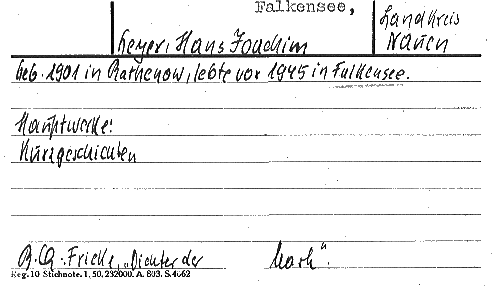 Falkensee,
Landkreis
Nauen
Heyer, Hans Joachim
Geb. 1901 in Rathenow, lebte vor 1945 in Falkensee.
Hauptwerke:
Kurzgeschichten
R. Cg. Fricke, „Dichter der Mark".
Reg. 10 Stichnote. 1, 50. 232000. A. 803. S. 4062